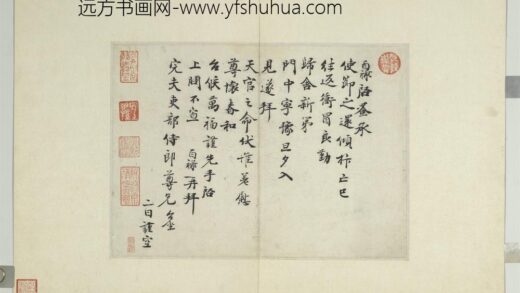 远方书画网-www.yfshuhua.com
百祿啓蚤承
使節之還傾亡已
往返衝冒良勤
歸舍新第
門中寧豫旦夕入
見遂拜
天官之命伏惟慰
尊懷春和
台候萬福謹先手啓
上問不宣 百祿再拜
完夫吏部侍郎尊兄台座
二日謹空